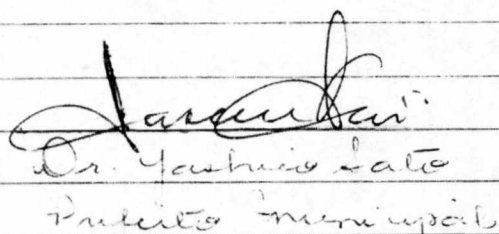 Dr. Yashuio Sato
Prefeito Municipal